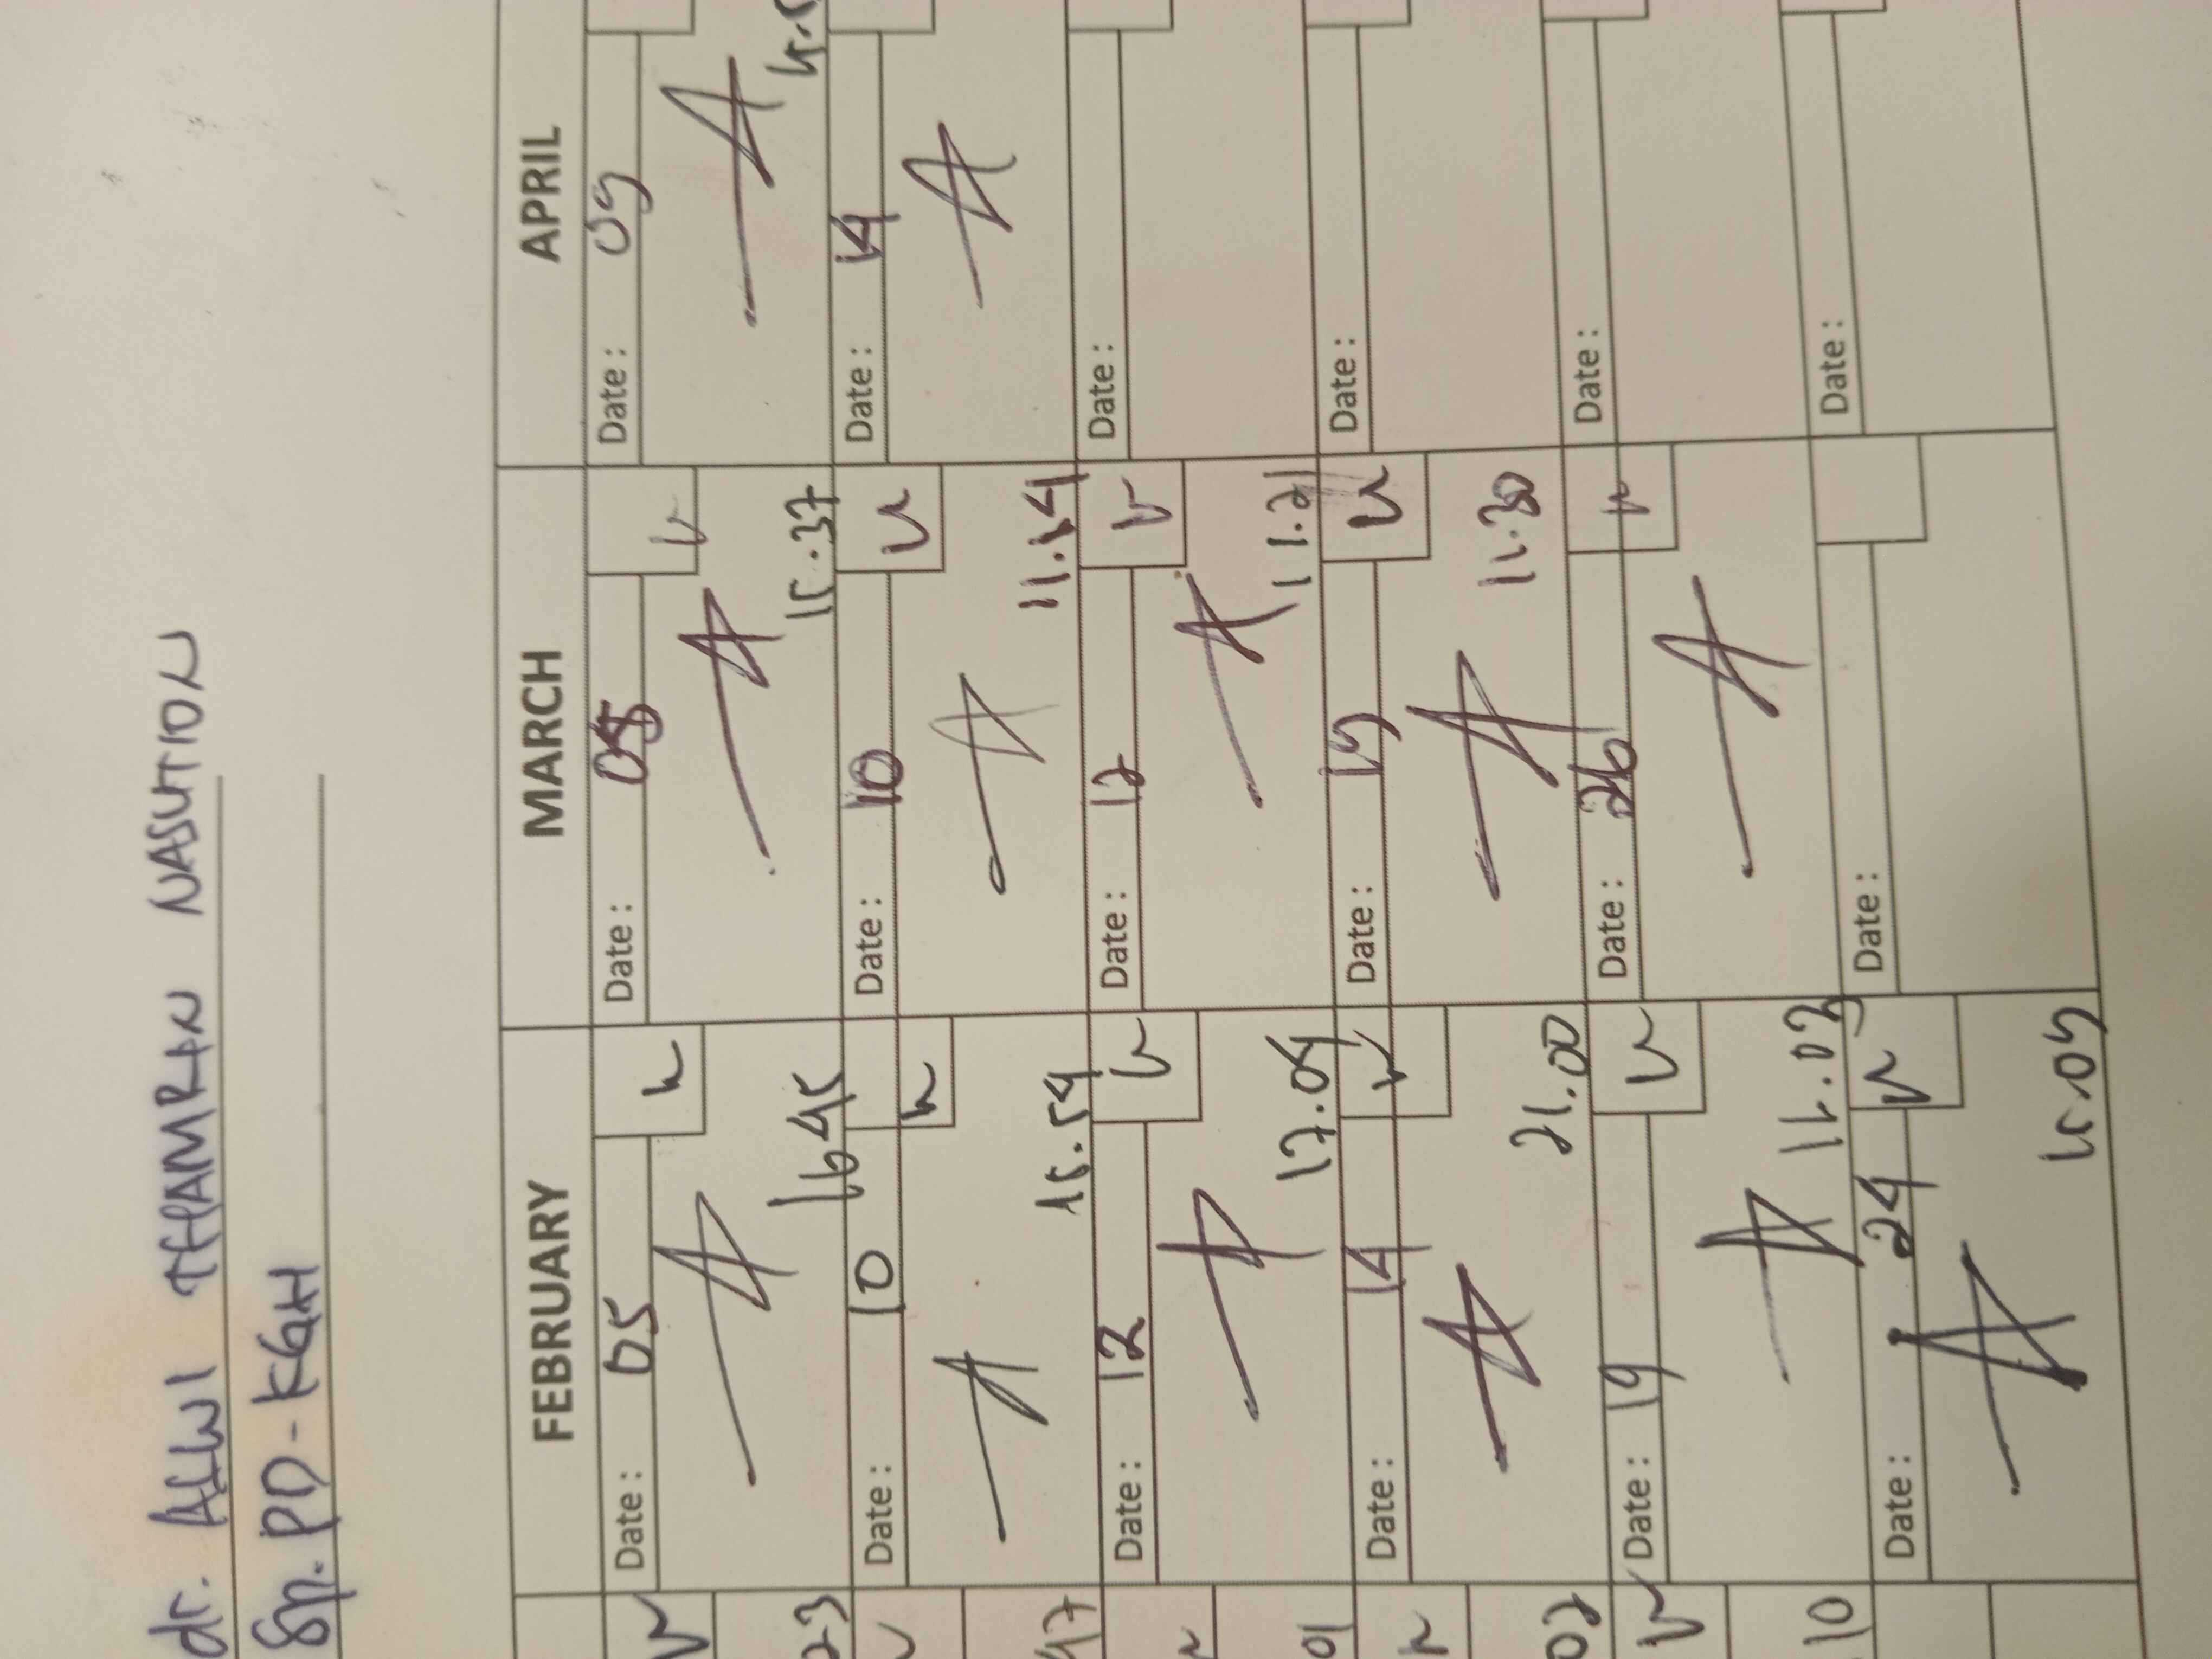 dr. ALWI THAMRIN NASUTION
Sp. PD - KGH
FEBRUARY MARCH APRIL
Date : 05 Date : 08 Date : 09
23 1645 15.37
Date : 10 Date : 10 Date : 14
47 15.54 11.54
Date : 12 Date : 12 Date :
01 17.04 11.21
Date : 14 Date : 19 Date :
02 21.00 11.30
Date : 19 Date : 26 Date :
10 11.03
Date : 24 Date : Date :
15.09